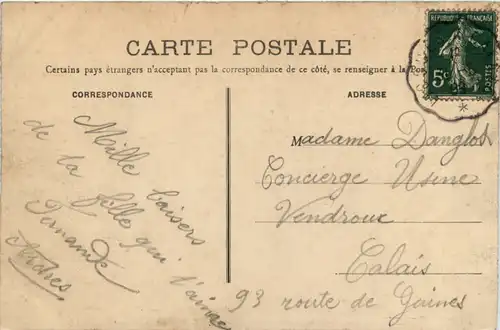 CARTE POSTALE
Certains pays étrangers n'acceptant pas la correspondance de ce côté, se renseigner à la Pos
CORRESPONDANCE
ADRESSE
RÉPUBLIQUE FRANÇAISE
5c
POSTES
Mille baisers
de la fille qui t'aime
Fernande
Ardres
Madame Danglot
Concierge Usine
Vendroux
Calais
93 route de Guines